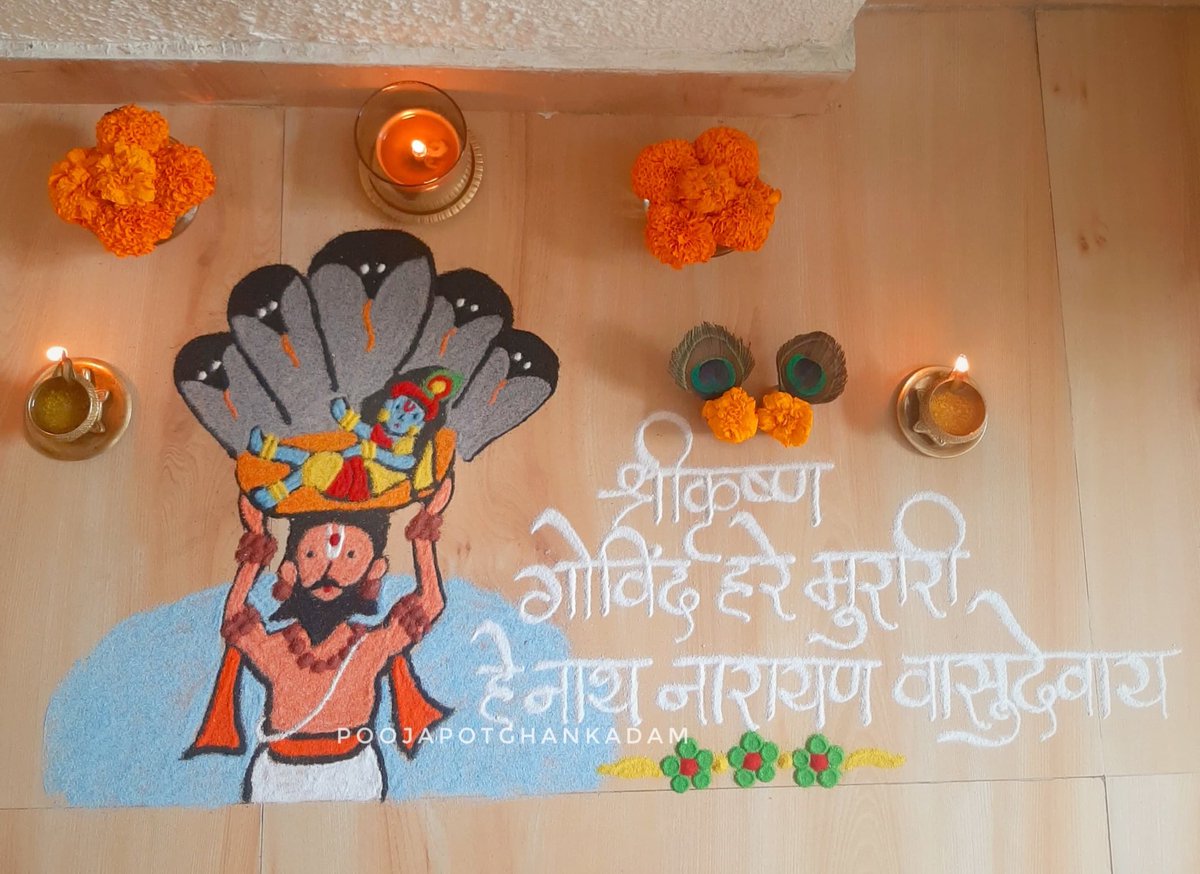 श्रीकृष्ण
गोविंद हरे मुरारी
हे नाथ नारायण वासुदेवाय
POOJAPOTGHANKADAM